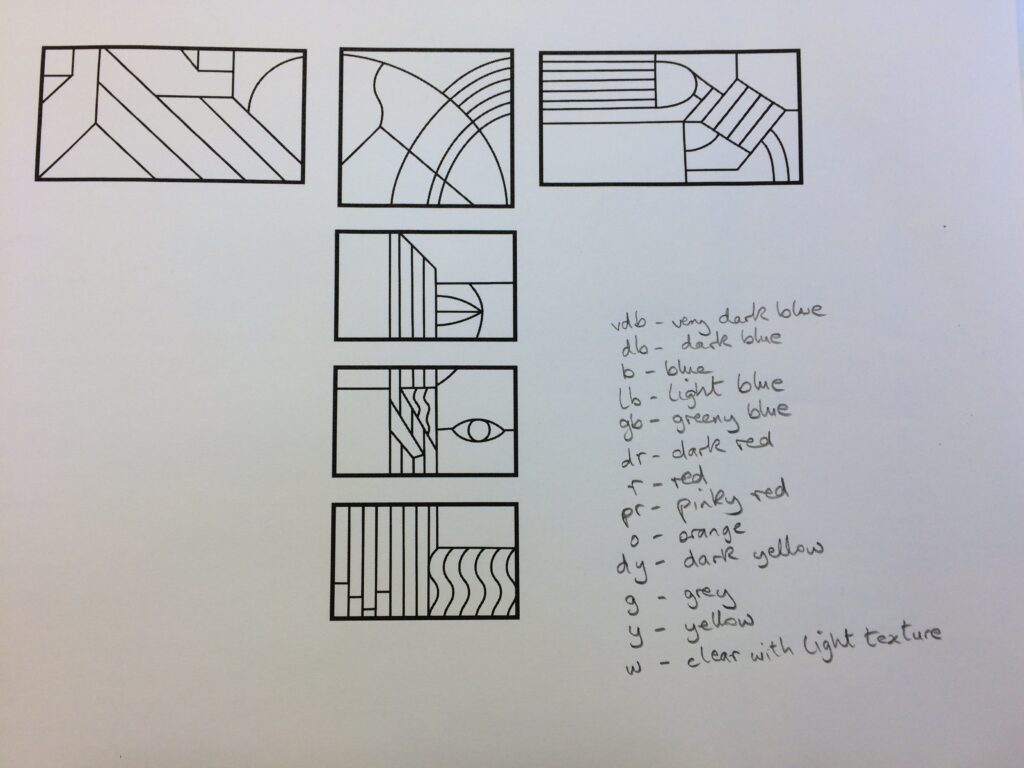 vdb - very dark blue
db - dark blue
b - blue
lb - light blue
gb - greeny blue
dr - dark red
r - red
pr - pinky red
o - orange
dy - dark yellow
g - grey
y - yellow
w - clear with light texture